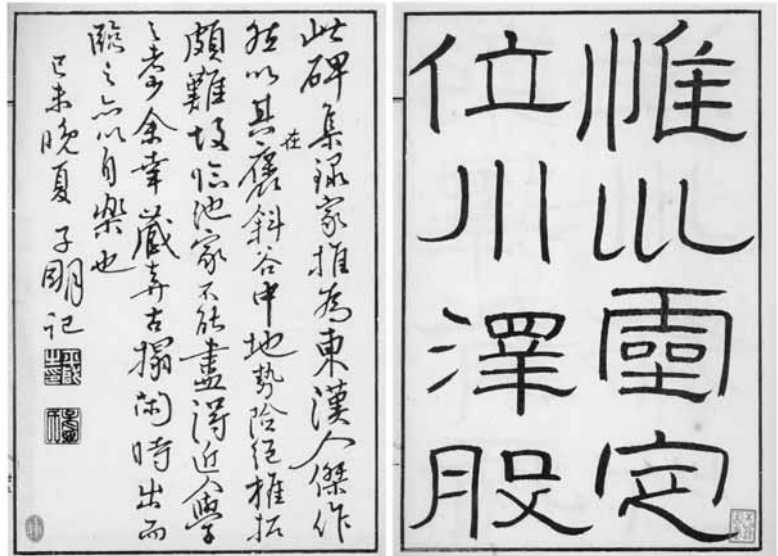 惟巛靈定
位川澤股
此碑集錄家推為東漢人傑作
然以其在褒斜谷中地勢險絕椎拓
頗難故臨池家不能盡得近人學
之者少余幸藏弆古搨閑時出而
臨之亦以自樂也
己未晚夏 子朙記